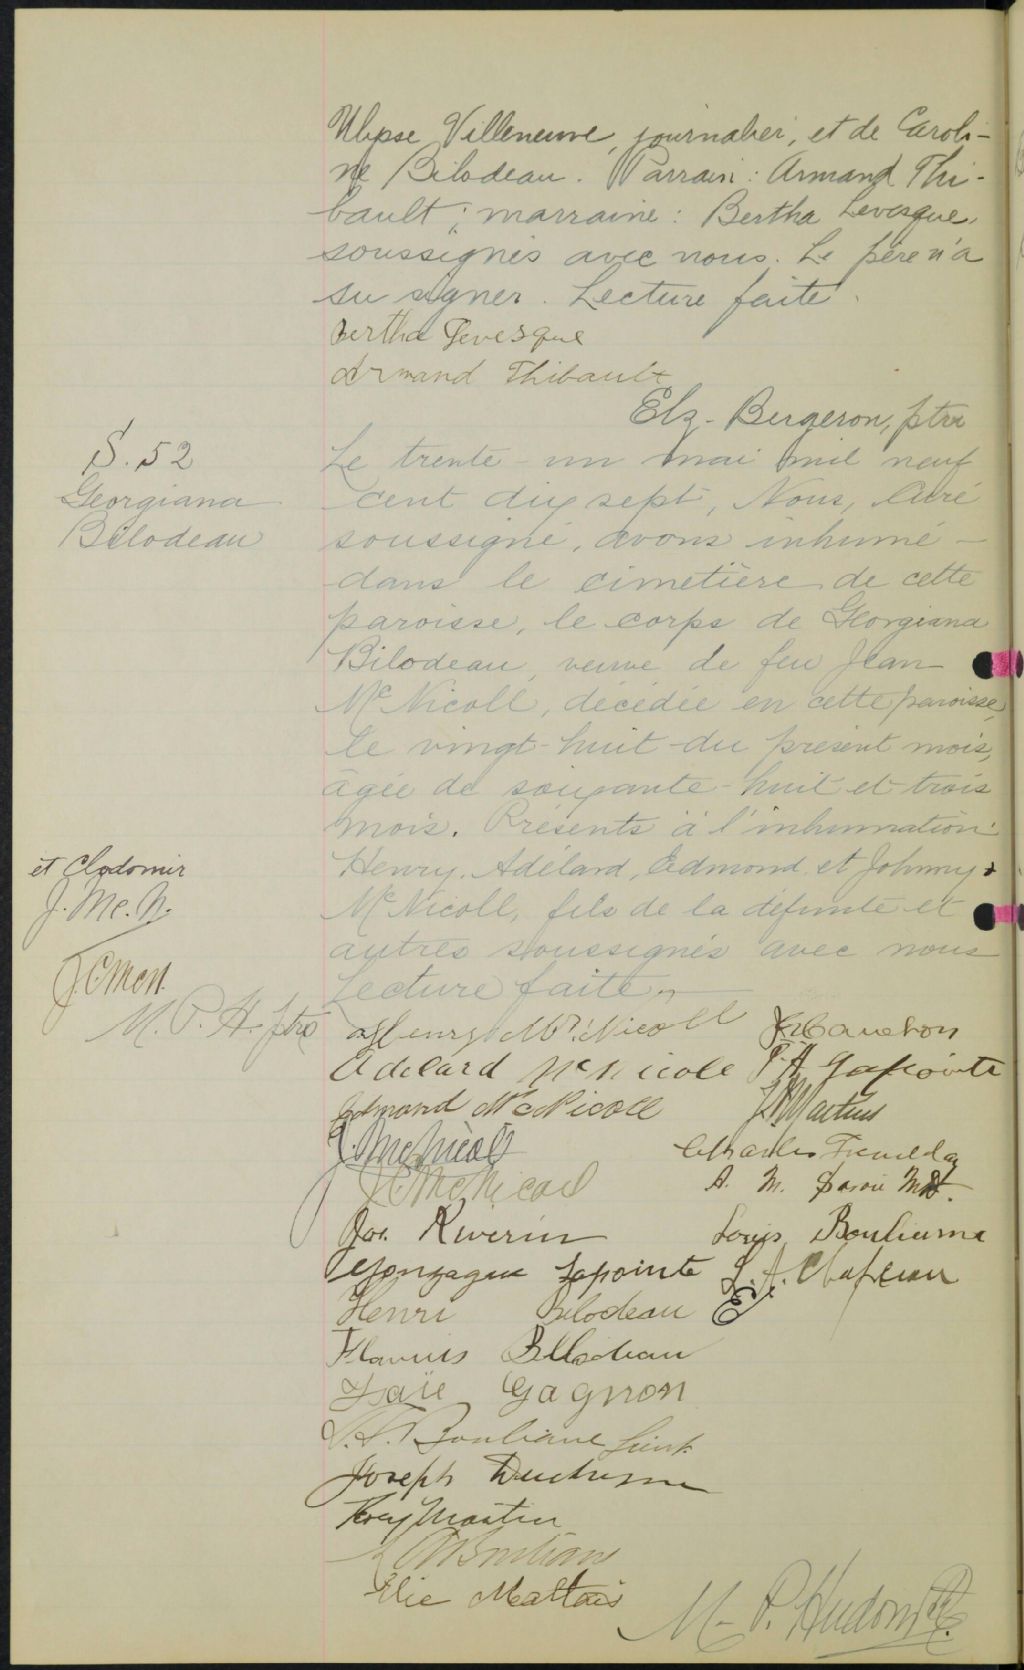 Ulysse Villeneuve, journalier, et de Caroli-
ne Bilodeau. Parrain: Armand Thi-
bault; marraine: Bertha Levesque,
soussignés avec nous. Le père n'a
su signer. Lecture faite.
Bertha Levesque
Armand Thibault
Elz. Bergeron, ptre
S. 52
Georgiana
Bilodeau
Le trente-un mai mil neuf
cent dix sept, Nous, Curé
soussigné, avons inhumé
dans le cimetière de cette
paroisse, le corps de Georgiana
Bilodeau, veuve de feu Jean
McNicoll, décédée en cette paroisse,
le vingt-huit du présent mois,
âgée de soixante-huit et trois
mois. Présents à l'inhumation:
Henry, Adélard, Edmond et Johnny +
McNicoll, fils de la défunte et
autres soussignés avec nous
Lecture faite.
et Clodomir
J. Mc. N.
J. C. McN.
M. P. H. ptre
Henry McNicoll
Adelard McNicole P. H. Lapointe
Edmond McNicoll J. Martin
J. McNicol Charles Tremblay
J C McNicoll A. M. Savoie M.D.
Jos. Riverin Louis Boulianne
Gonzague Lapointe
Henri Bilodeau
Flavius Billodeau
Isaïe Gagnon
Boulianne
Joseph Duchesne
Martin
Elie Maltais
M. P. Hudon Ptre